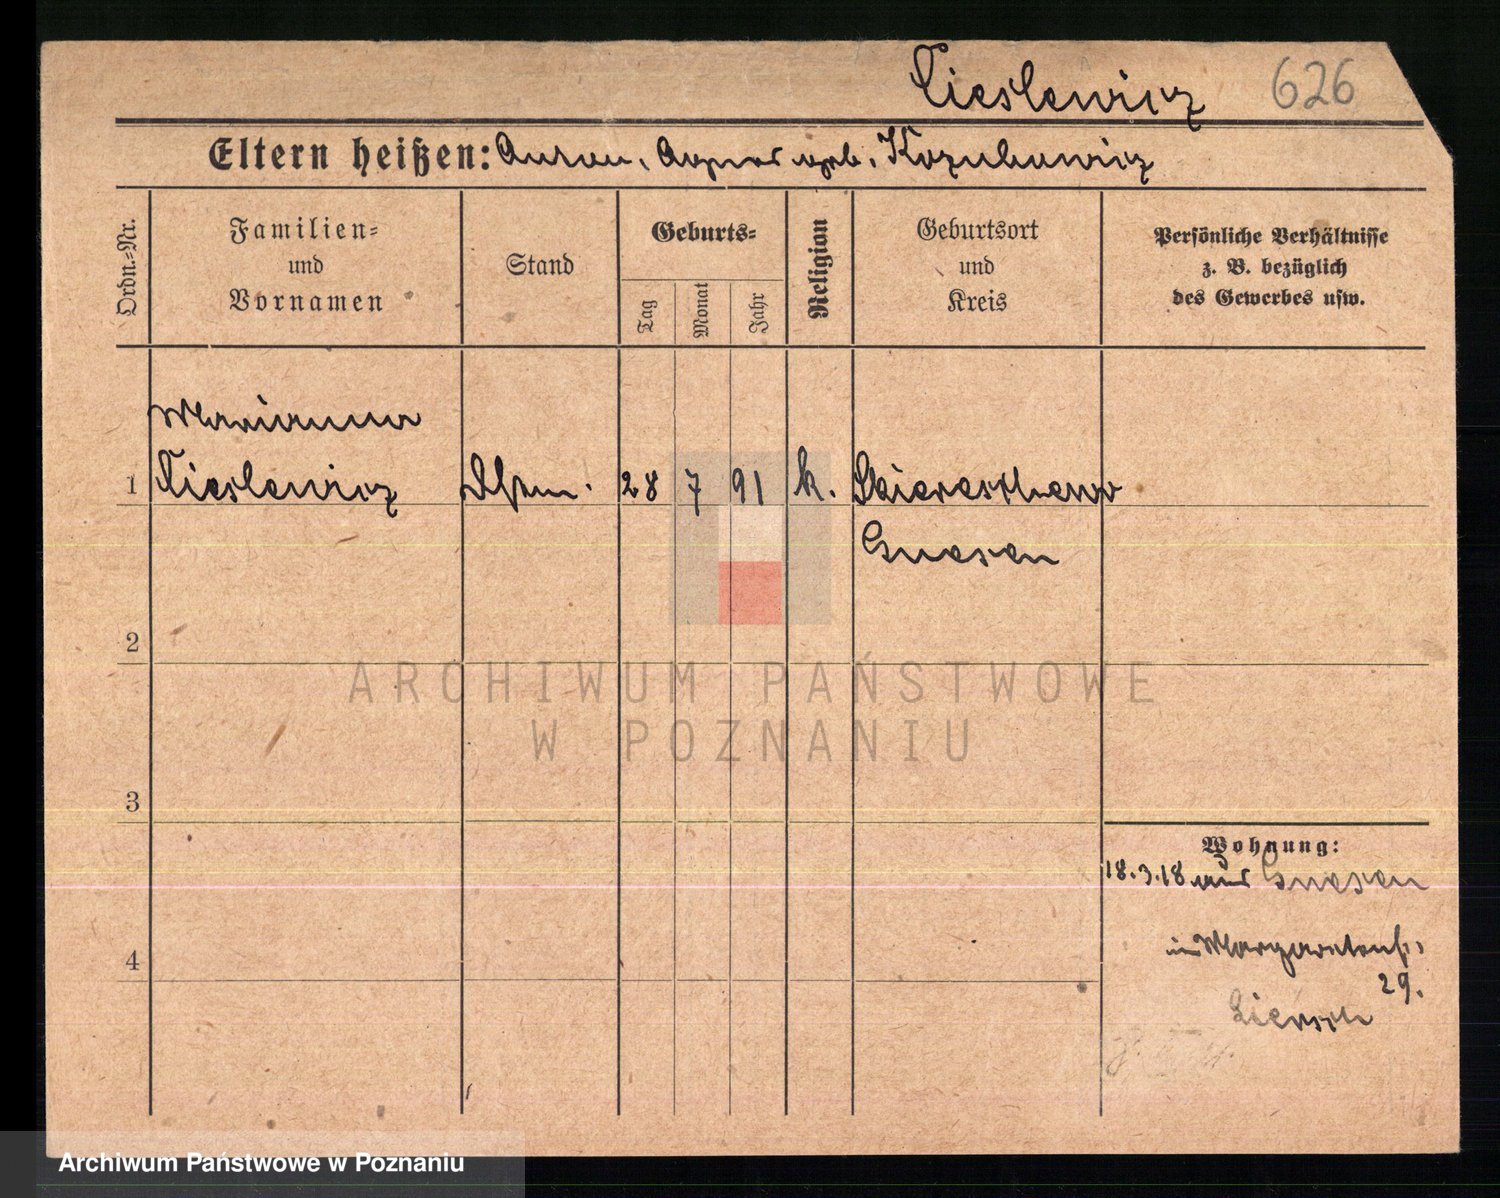 Cieslewicz 626
Eltern heißen: Anton, Agnes geb. Kozuhowicz
Ordn.-Nr.
Familien-
und
Vornamen
Stand
Geburts-
Tag
Monat
Jahr
Religion
Geburtsort
und
Kreis
Persönliche Verhältnisse
z. B. bezüglich
des Gewerbes usw.
Marianna
1 Cieslewicz 28 7 91 k.
Gnesen
2
3
4
Wohnung:
18.3.18 aus Gnesen
in Margaretenstr.
29.
Liersch
ARCHIWUM PAŃSTWOWE
W POZNANIU
Archiwum Państwowe w Poznaniu